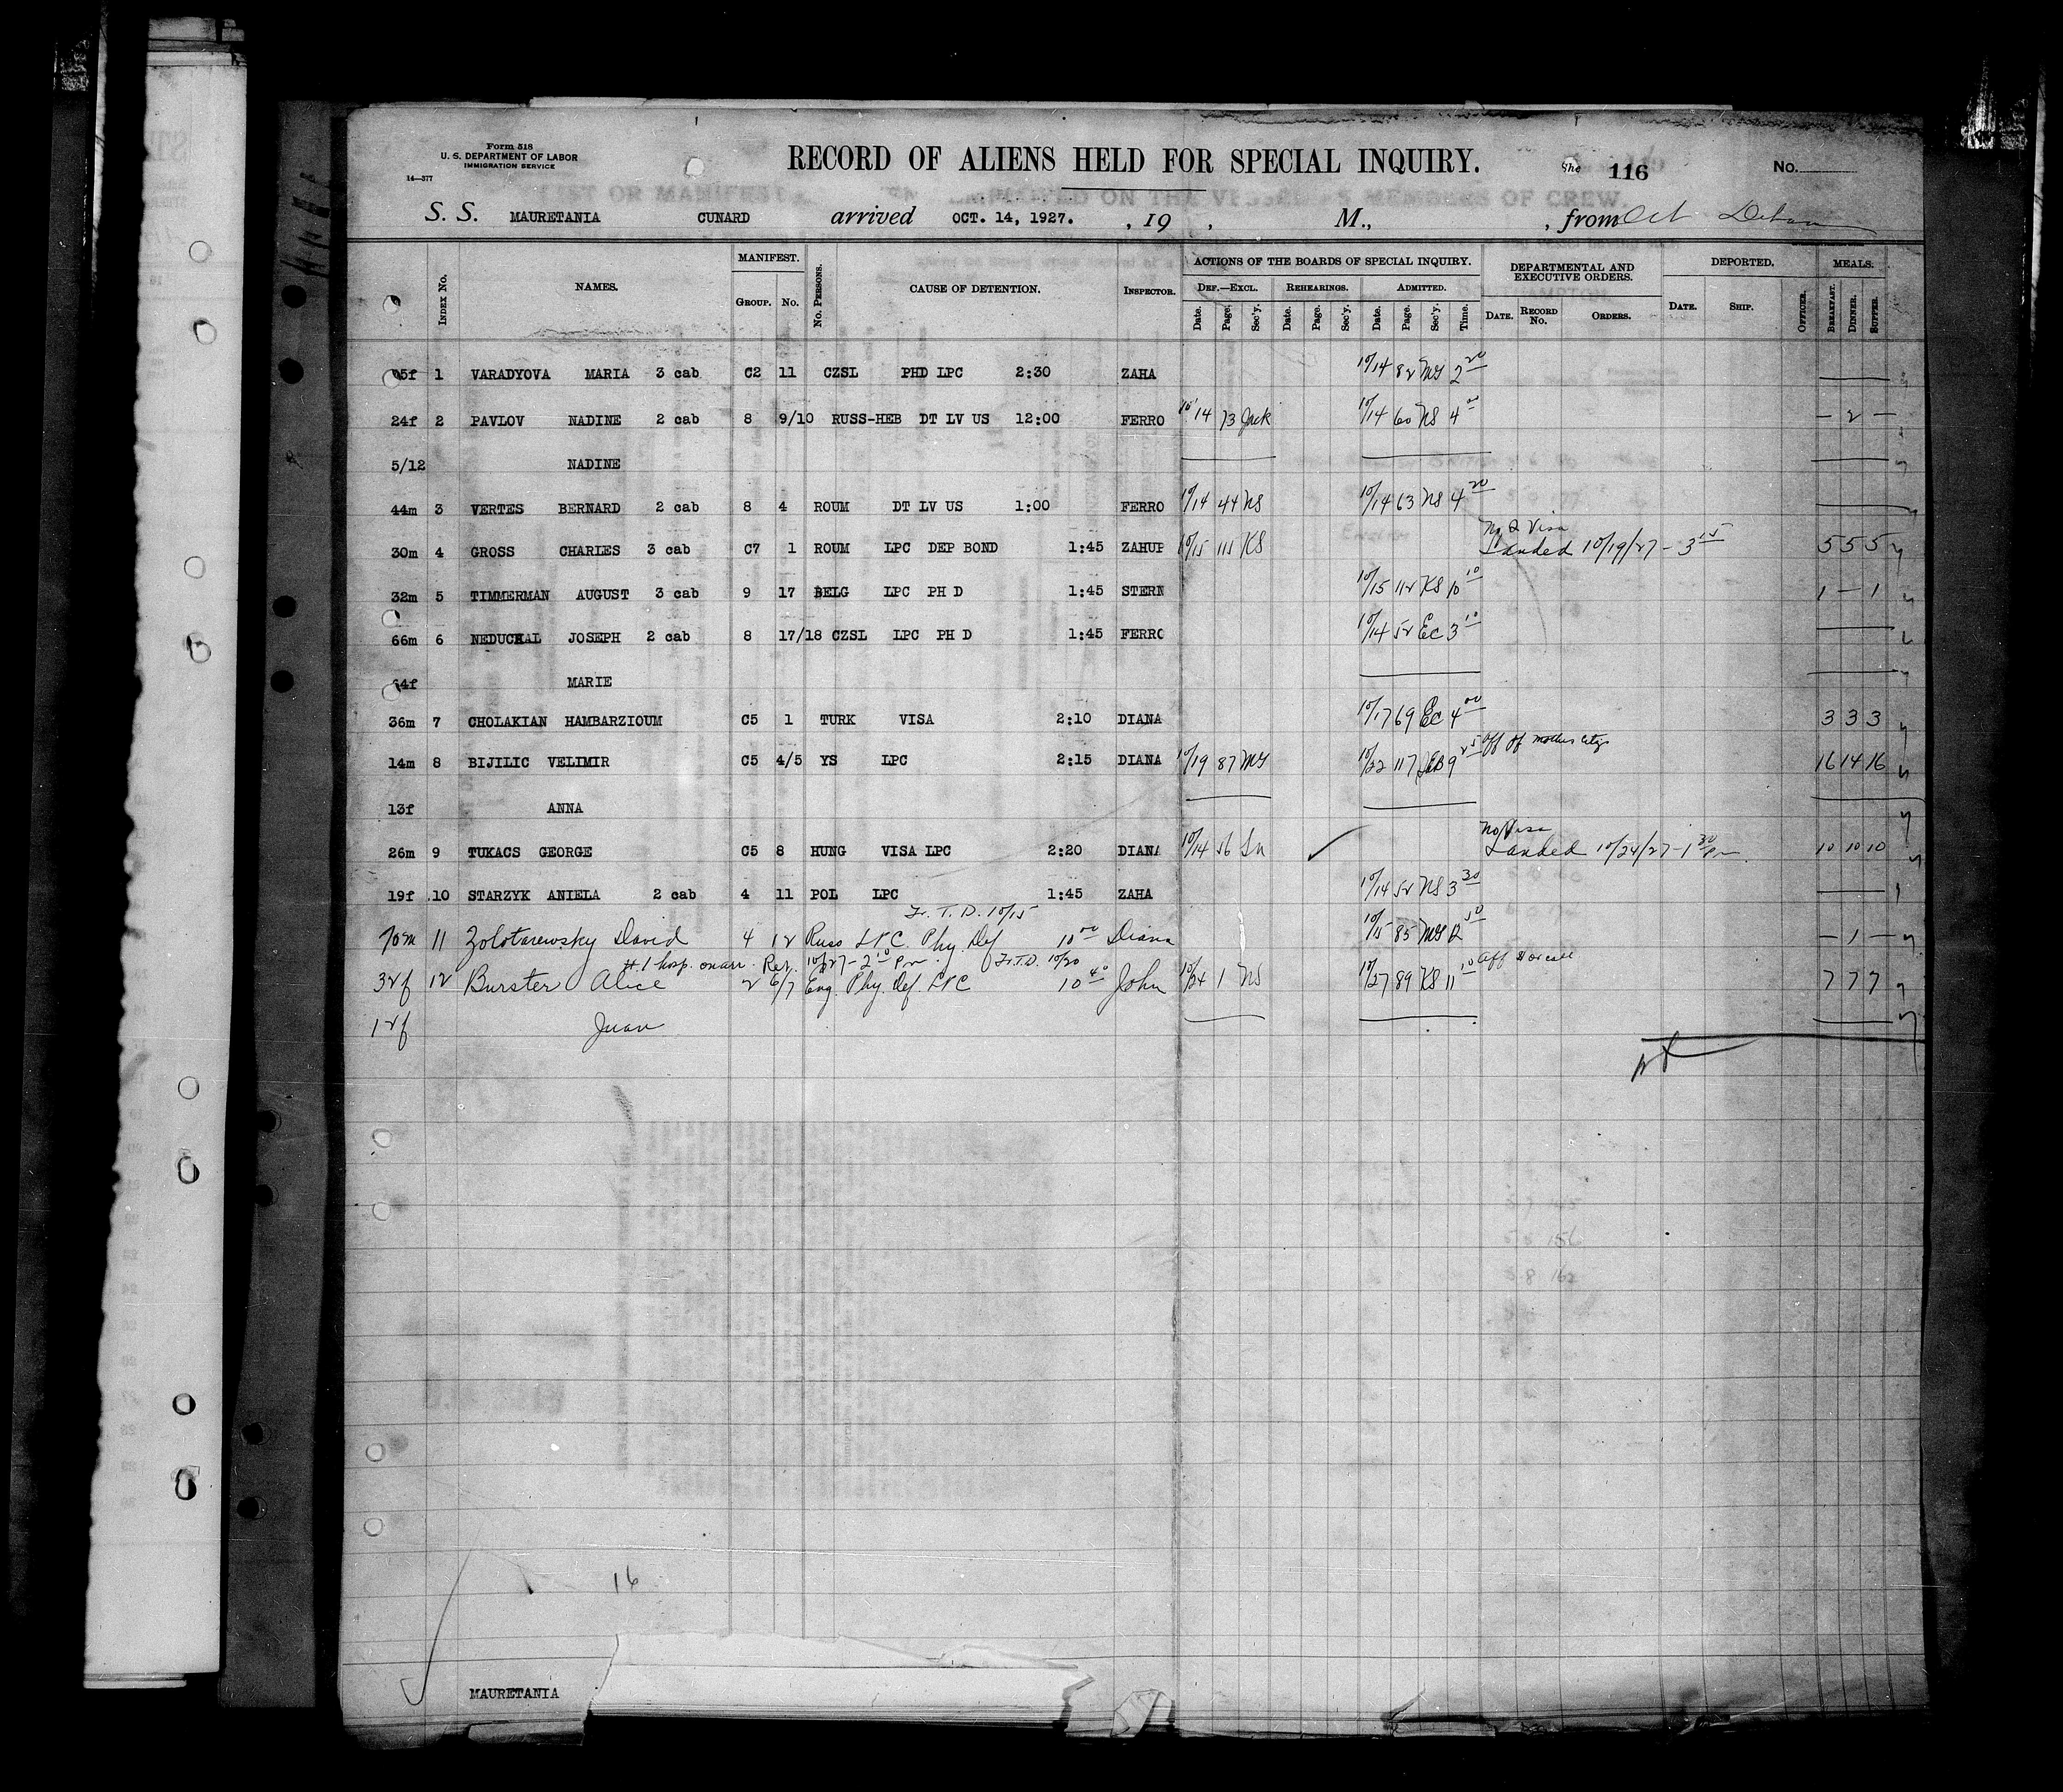 Form 518
U. S. DEPARTMENT OF LABOR
IMMIGRATION SERVICE
14—377
RECORD OF ALIENS HELD FOR SPECIAL INQUIRY.
She 116
No.
S. S. MAURETANIA CUNARD arrived OCT. 14, 1927. , 19 , M., , from
INDEX No. NAMES. MANIFEST. GROUP. No. No. PERSONS. CAUSE OF DETENTION. INSPECTOR. ACTIONS OF THE BOARDS OF SPECIAL INQUIRY. DEPARTMENTAL AND EXECUTIVE ORDERS. DEPORTED. MEALS.
DEF.—EXCL. REHEARINGS. ADMITTED.
Date. Page. Sec'y. Date. Page. Sec'y. Date. Page. Sec'y. Time. DATE. RECORD No. ORDERS. DATE. SHIP. OFFICER. BREAKFAST. DINNER. SUPPER.
1 VARADYOVA MARIA 3 cab C2 11 CZSL PHD LPC 2:30 ZAHA 10/14 82 MG 2 20
24f 2 PAVLOV NADINE 2 cab 8 9/10 RUSS-HEB DT LV US 12:00 FERRO 10/14 73 Jack 10/14 60 NS 4 00 — 2 —
5/12 NADINE
44m 3 VERTES BERNARD 2 cab 8 4 ROUM DT LV US 1:00 FERRO 10/14 44 NS 10/14 63 NS 4 20
Visa
30m 4 GROSS CHARLES 3 cab C7 1 ROUM LPC DEP BOND 1:45 ZAHUR 10/15 111 KS Landed 10/19/27 - 3 15 5 5 5
32m 5 TIMMERMAN AUGUST 3 cab 9 17 BELG LPC PH D 1:45 STERN 10/15 112 KS 10 10 1 — 1
66m 6 NEDUCHAL JOSEPH 2 cab 8 17/18 CZSL LPC PH D 1:45 FERRO 10/14 52 EC 3 10
64f MARIE
36m 7 CHOLAKIAN HAMBARZIOUM C5 1 TURK VISA 2:10 DIANA 10/17 69 EC 4 00 3 3 3
14m 8 BIJILIC VELIMIR C5 4/5 YS LPC 2:15 DIANA 10/19 87 MG 10/22 117 JEB 9 25 Aff of mother 16 14 16
13f ANNA
No Visa
26m 9 TUKACS GEORGE C5 8 HUNG VISA LPC 2:20 DIANA 10/14 56 Landed 10/24/27 - 1 30 Pm 10 10 10
19f 10 STARZYK ANIELA 2 cab 4 11 POL LPC 1:45 ZAHA 10/14 52 NS 3 30
Fr. T. D. 10/15
70m 11 Zolotarewsky David 4 12 Russ LPC. Phy. Def 10 00 Diana 10/15 85 MG 12 50 — 1 —
#1 hosp. on arr. Rer. 10/27 - 2 10 Pm. Fr. T.D. 10/20
32f 12 Burster Alice 2 6/7 Eng. Phy. Def. LPC 10 40 John 10/24 1 NS 10/27 89 KS 11 10 7 7 7
12f Juan
16
MAURETANIA